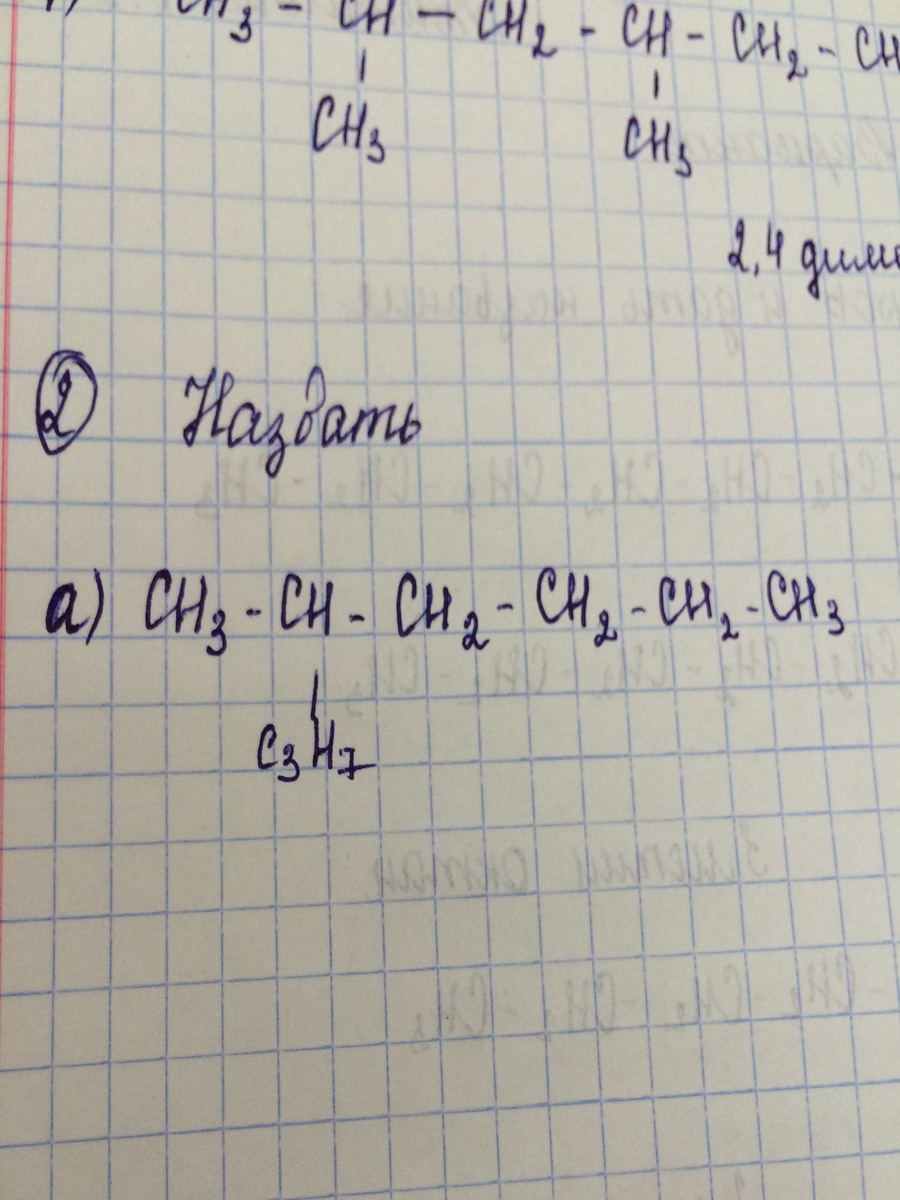 CH3 - CH - CH2 - CH - CH2 - CH
CH3 CH3
2,4 диме
② Назвать
а) CH3 - CH - CH2 - CH2 - CH2 - CH3
C3H7